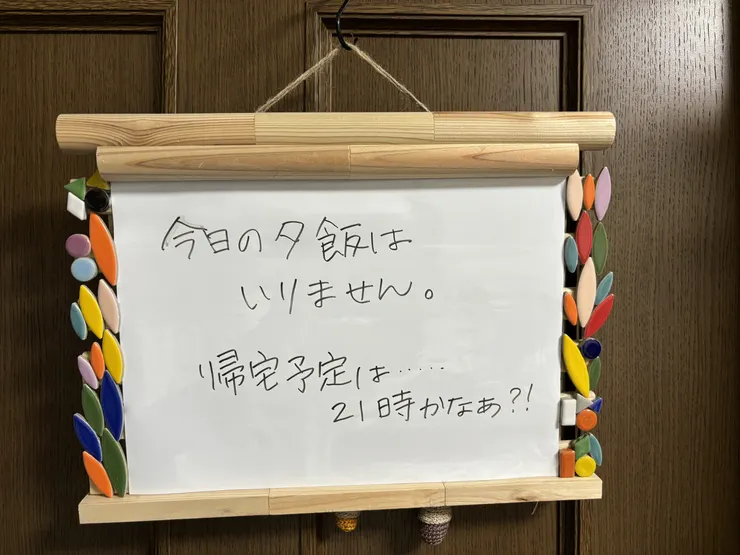 今日の夕飯は
いりません。
帰宅予定は……
21時かなぁ?!